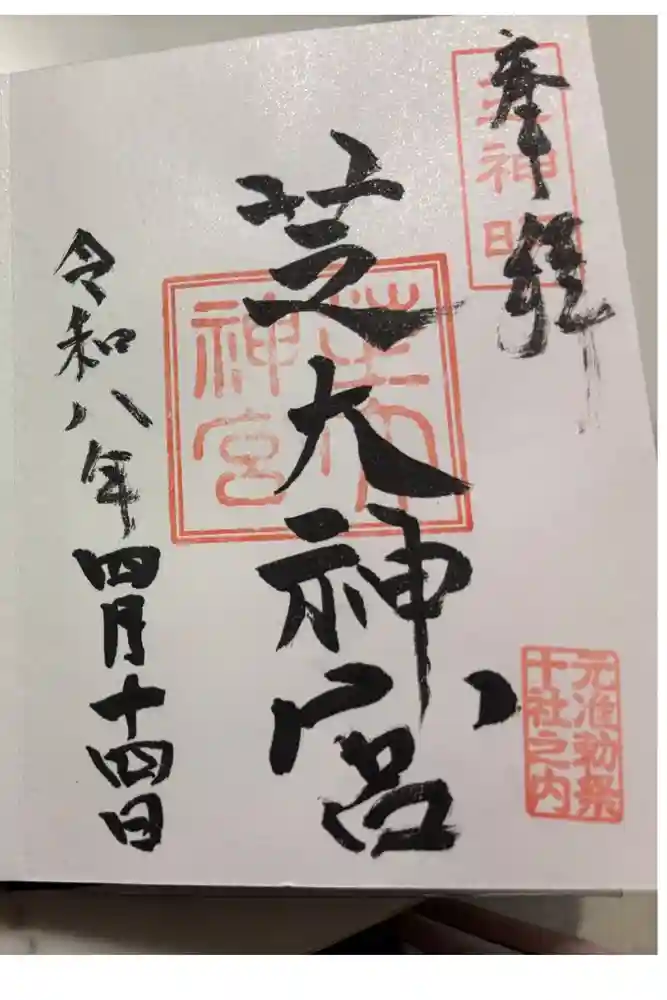 奉拝
芝神明
元准勅祭
十社之内
芝大神宮
芝大
神宮
令和八年四月十四日